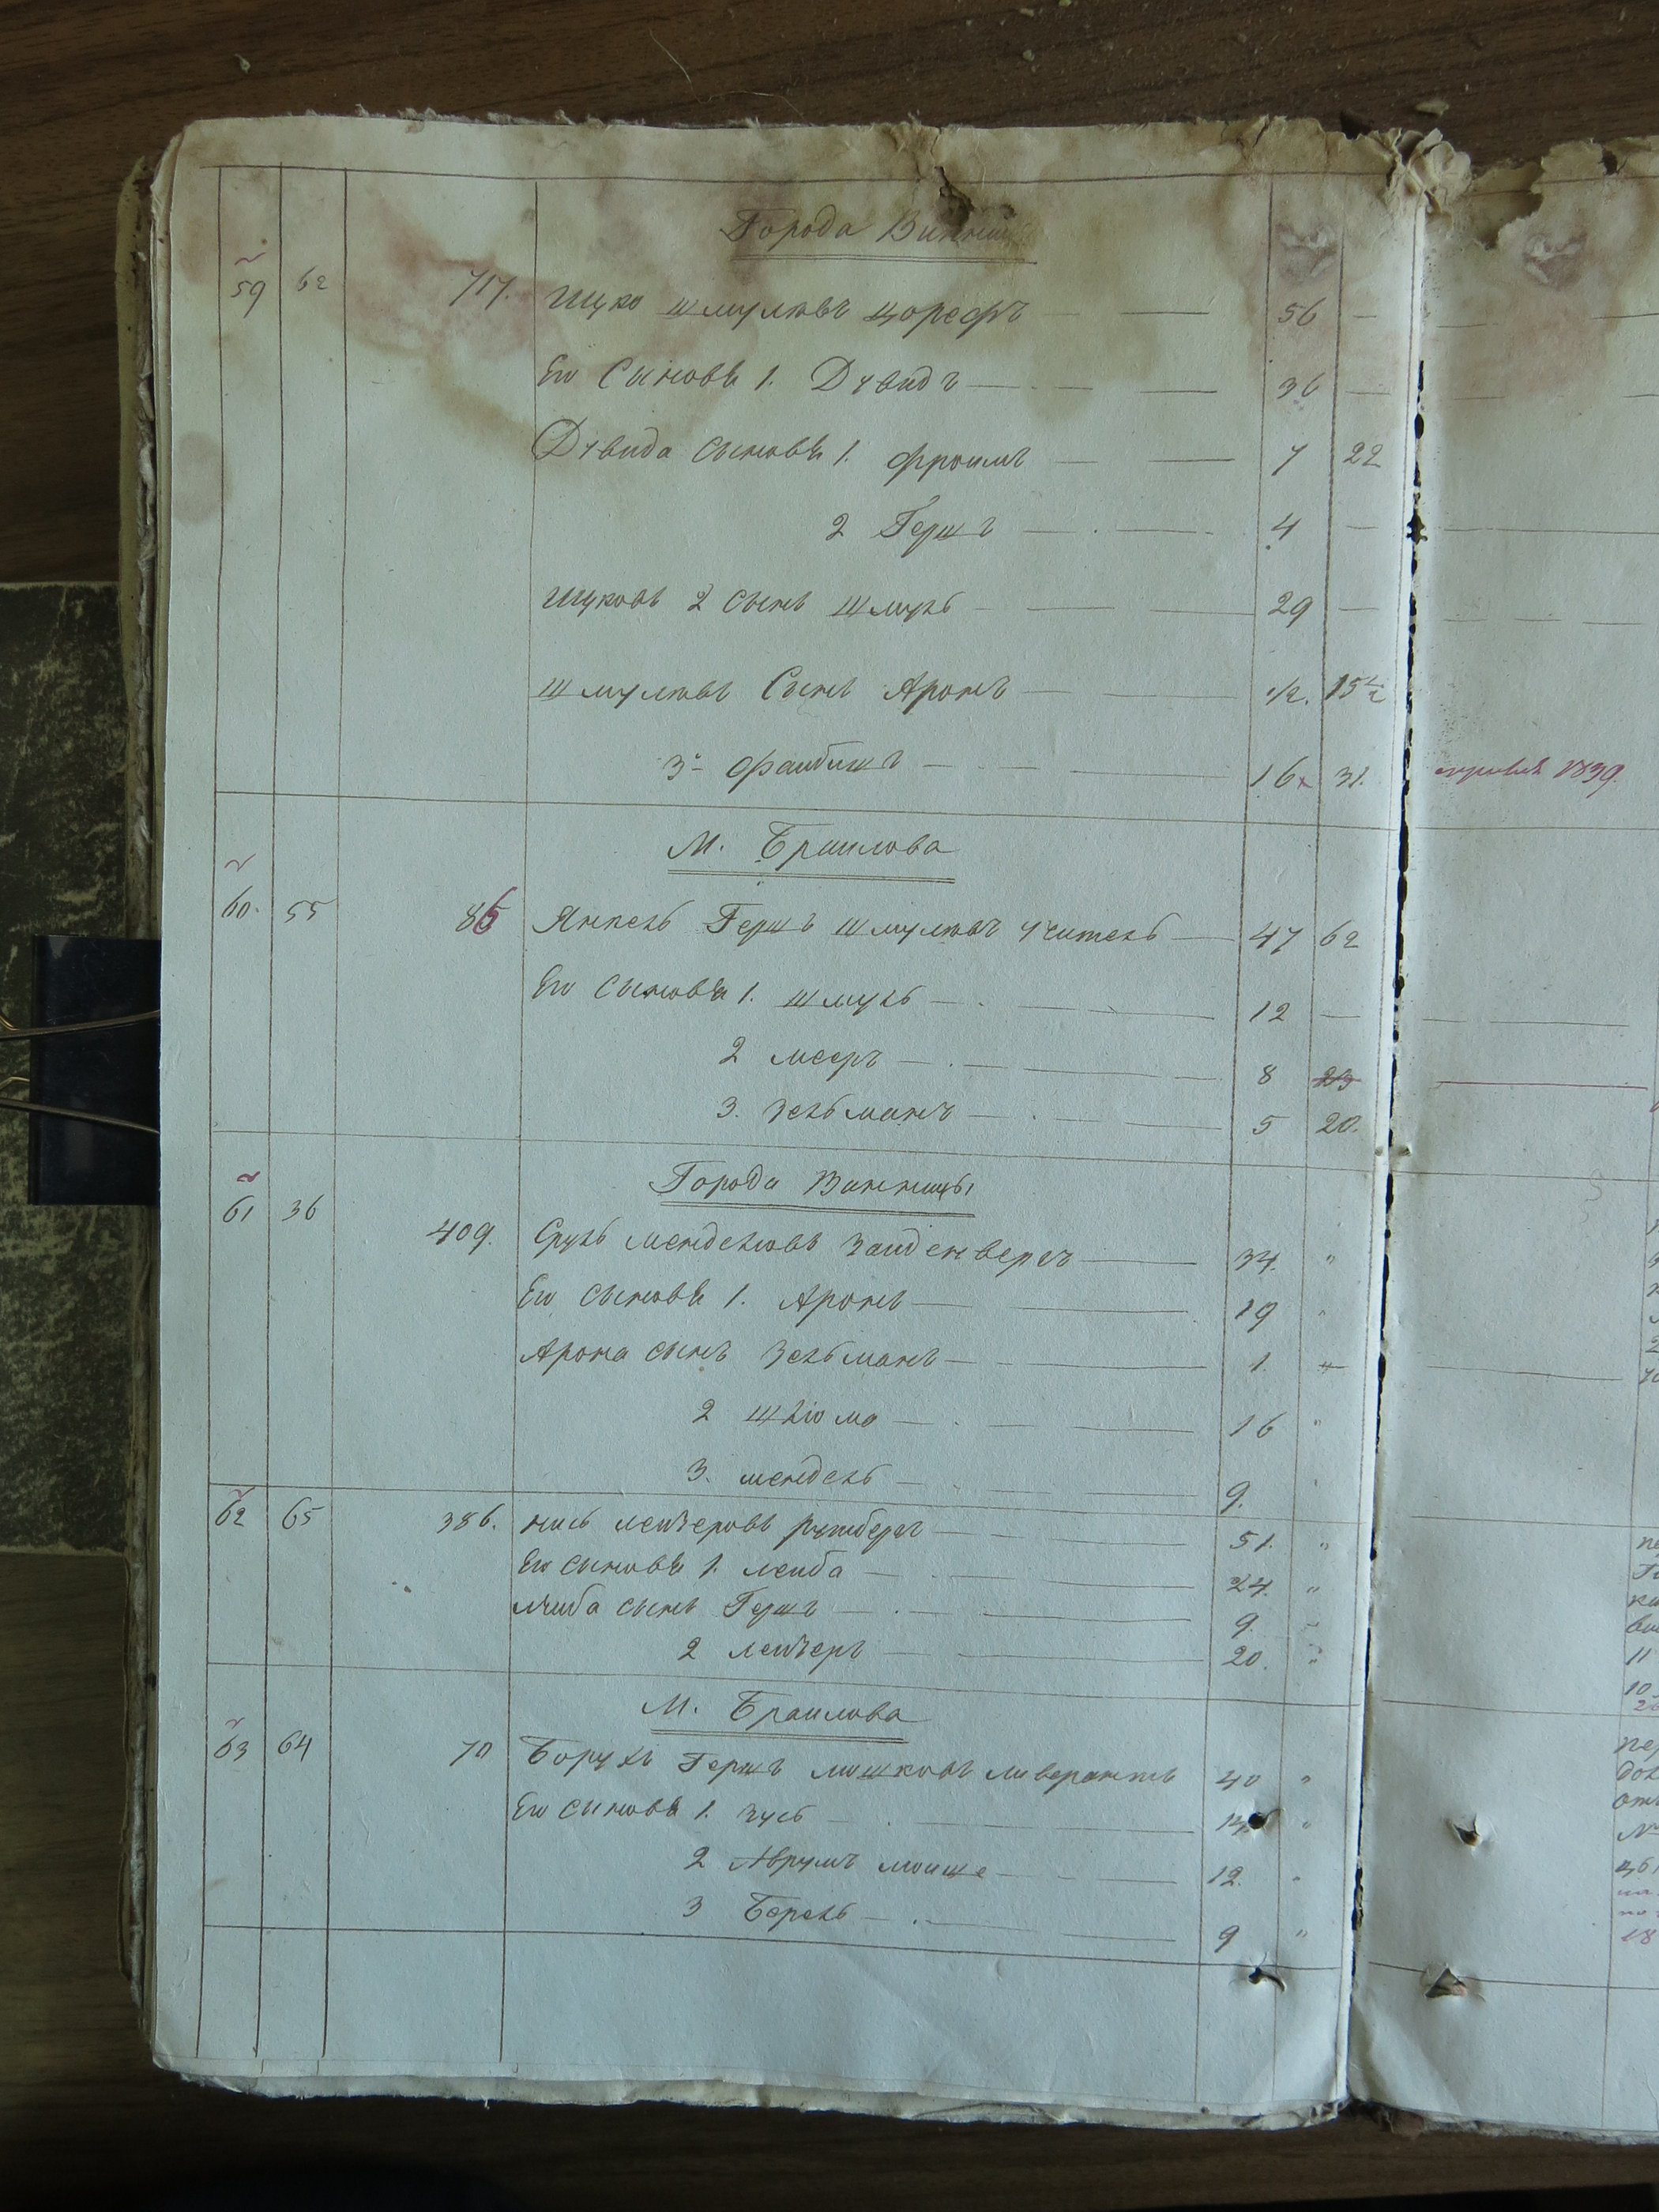 Города Винницы
59 62 717. Ицко Шмулювъ Цорефъ — — 56 —
Его Сыновья 1. Дувидъ — — 36 —
Дувида сыновья 1. Фроимъ — — 7 22
2 Гершъ — — 4 —
Ицковъ 2 сынъ Шмуль — — 29 —
Шмулювъ Сынъ Аронъ — — 1/2. 15 1/2
3й Файбишъ — — 16 31. 1839.
М. Браилова
60. 55 86 Янкель Гершъ Шмулювъ Учитель — 47 62
Его Сыновья 1. Шмуль — — 12 —
2 Мееръ — — 8 23
3. Зельманъ — — 5 20.
Города Винницы
61 36 409. Сруль Менделювъ Зайденвергъ — 34. "
Его сыновья 1. Аронъ — — 19 "
Арона сынъ Зельманъ — — 1. "
2 Шлiома — — 16 "
3. Мендель — — 9. "
62 65 386. Нись Лейзеровъ Ритбергъ — — 51. "
Его сыновья 1. Лейба — — 24. "
Лейба сынъ Гершъ — — 9. "
2 Лейзеръ — — 20. "
М. Браилова
63 64 70 Борухъ Гершъ Мошковъ Ливерантъ 40 "
Его сыновья 1. Зусь — — 14 "
2 Аврумъ Моише — — 12. "
3 Берель — — 9 "